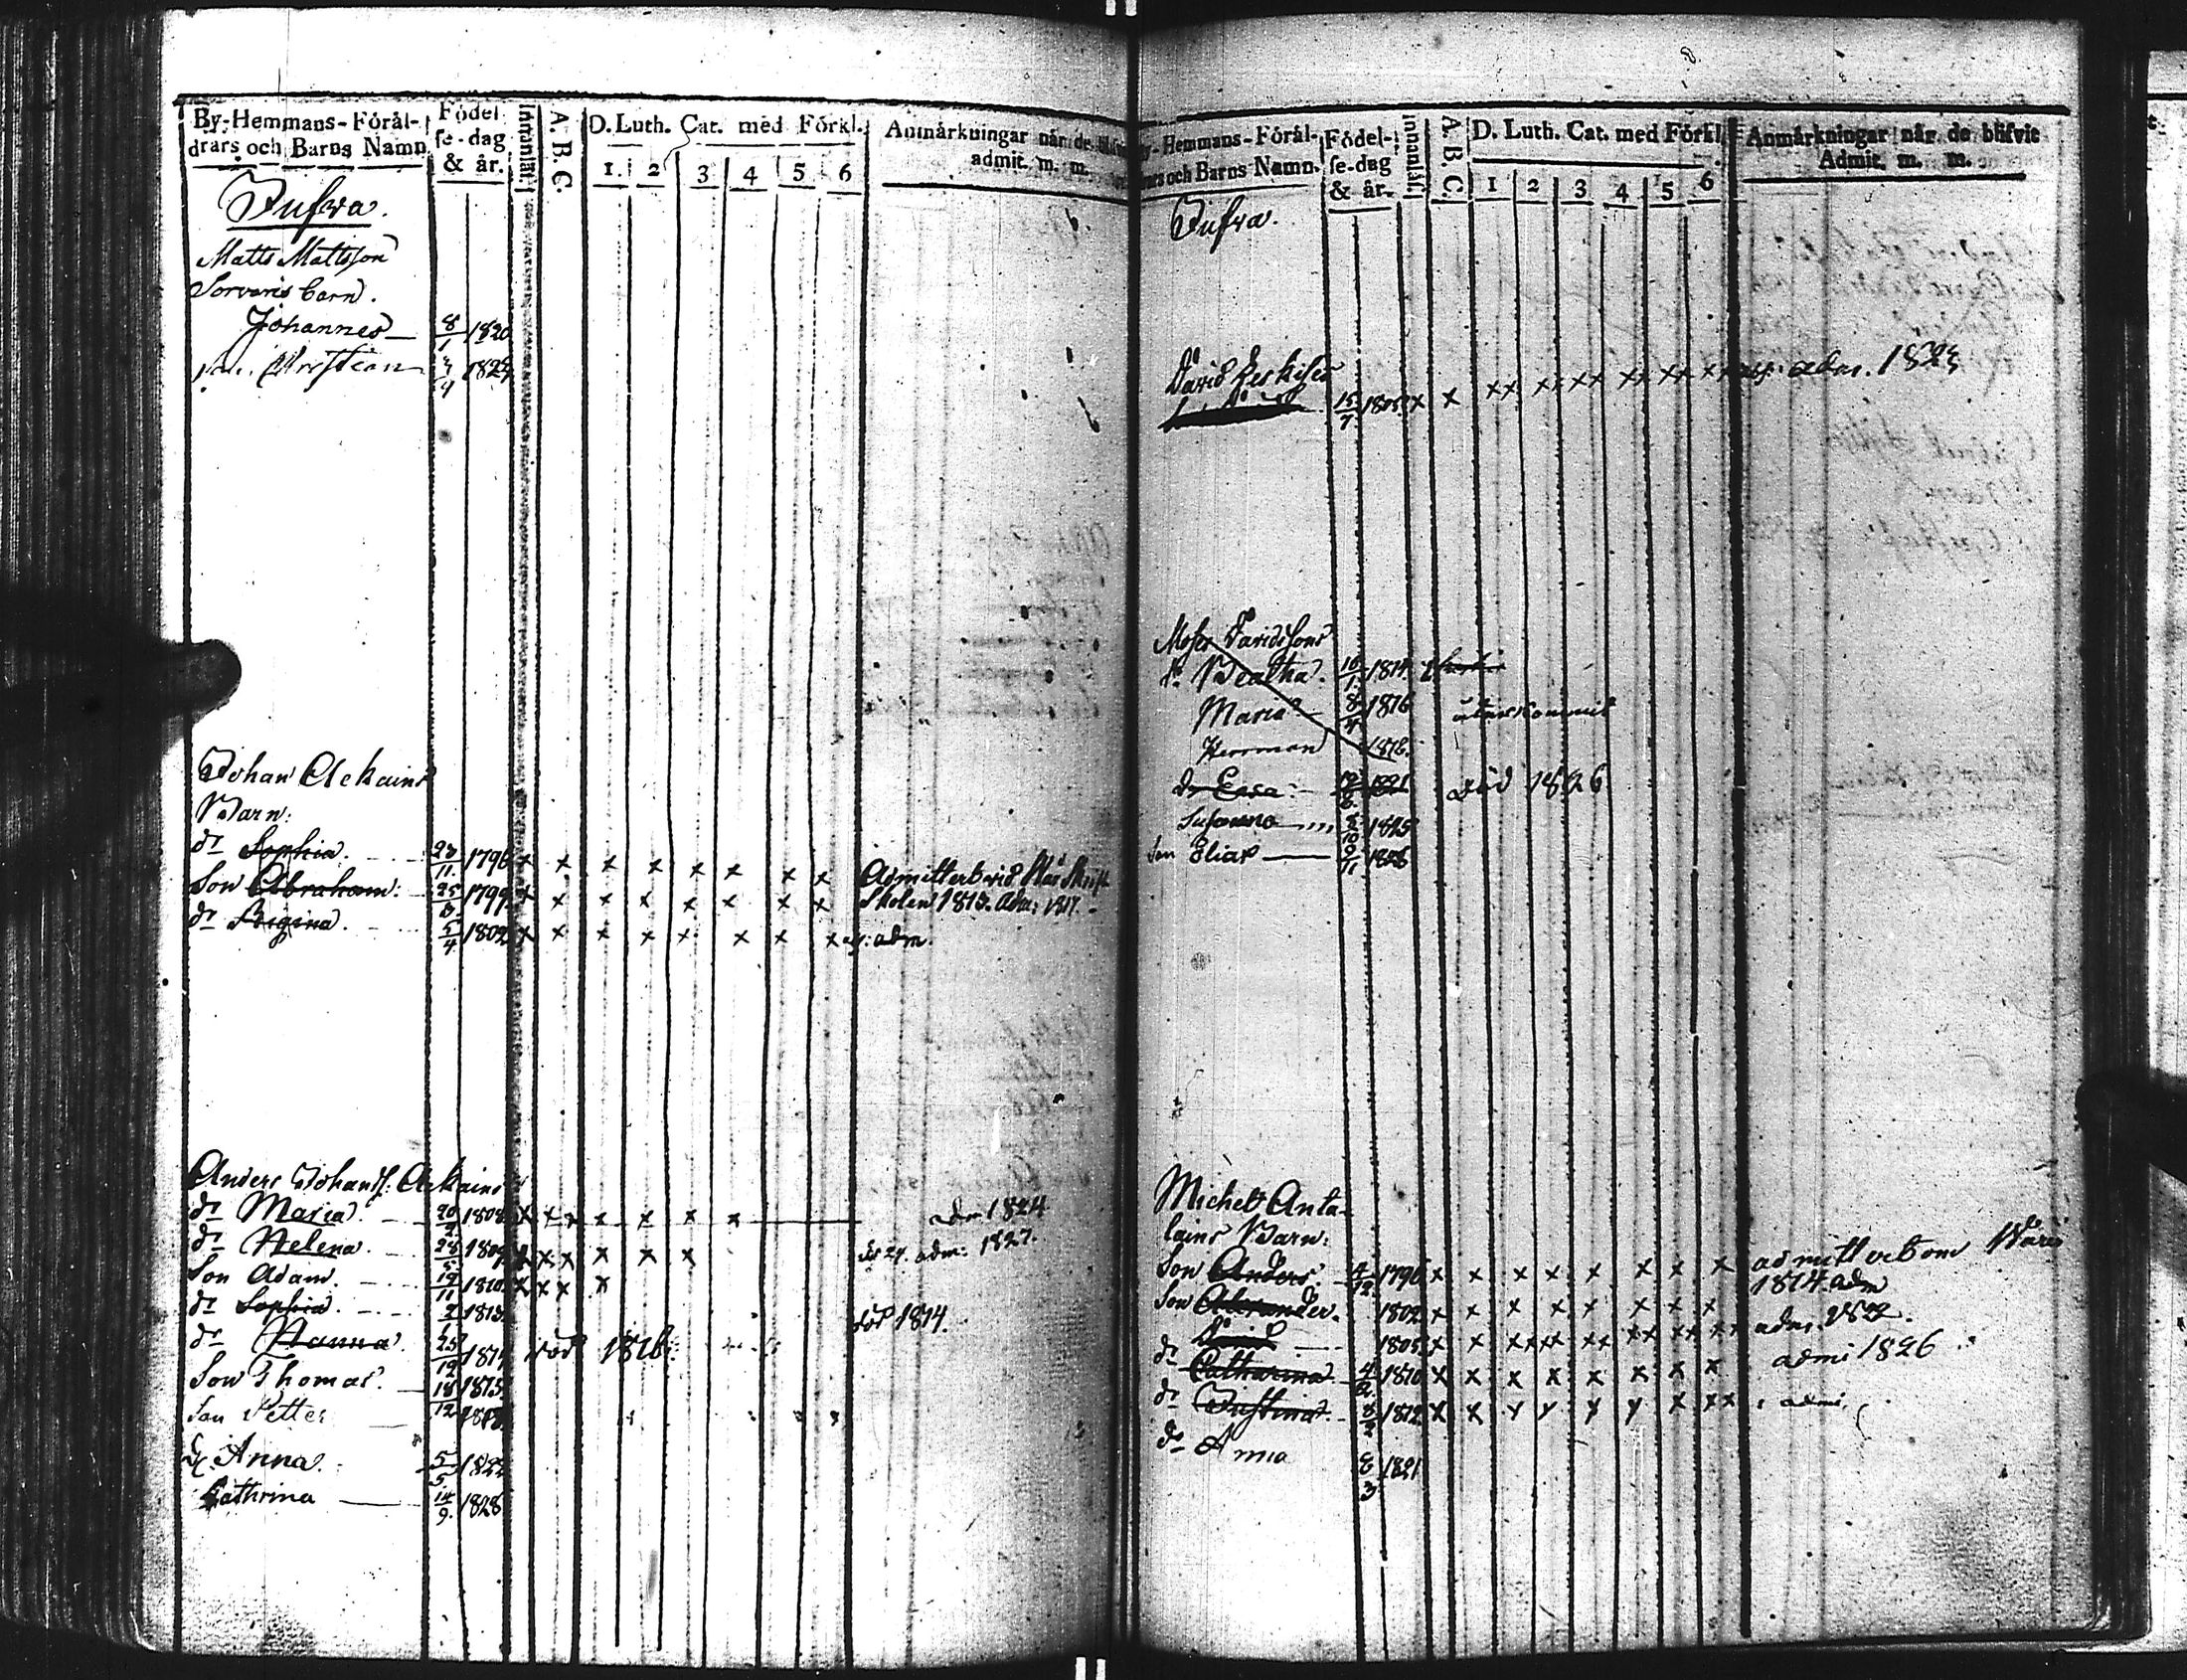 By-Hemmans-Förål-
drars och Barns Namn
Födel
se-dag
& år.
Innanläs.
A. B. C.
D. Luth. Cat. med Förkl.
1. 2 3 4 5 6
Anmärkningar när de blifvit
admit. m. m.
Jufva.
Matts Mattsson
Sorvaris barn.
Johannes 8/1 1820
Christian
Johan Ackains
Barn:
dr Sophia. 23/11 1796 x x x x x x x x Admitterts vid
Son Abraham: 25/8 1799 x x x x x x x x Skolen 1813. adm: 1817.
dr Regina. 5/4 1802 x x x x x x x x adm.
Anders Johanss: Ackains
dr Maria. 1808 x x x x x x x adm 1824
dr Helena. x x x x x x adm: 1827.
Son Adam. 19/11 1810 x x x x
dr Sophia. 1813 död 1814.
dr Hanna. 25/12 1814 död 1816
Son Thomas. 18/12 1815
Son Petter 1818
dr Anna. 5/5 1822
Cathrina 14/9 1828
By-Hemmans-Förål-
drars och Barns Namn.
Födel-
se-dag
& år.
Innanläs.
A. B. C.
D. Luth. Cat. med Förkl.
1 2 3 4 5 6
Anmärkningar när de blifvit
Admit. m. m.
Jufva.
David
15/7 1805 x x xx xx xx xx xx adm. 1823
Moses Davidssons
dr Beatha. 16/1 1814
Maria 1816 utkommit
Herrman 1818
dr Ewa 1821 död 1826
Susanna 8/10 1825
Son Elias 9/11 1826
Michel Anta-
lains Barn:
Son Anders. 4/12 1796 x x x x x x x x admitterts om Våren
1814 adm
Son Alexander. 1802 x x x x x x x x
David 1805 x x xx xx xx xx xx
dr Catharina 4/2 1810 x x x x x x x x admi 1826
dr Justina 8/2 1812 x x x x x x x xx admi.
dr Anna 8/3 1821